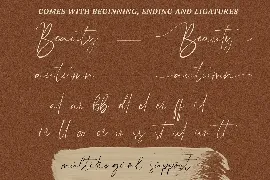 COMES WITH BEGINNING, ENDING AND LIGATURES
Beauty — Beauty
autumn autumn
al an bb dl el er ff il
ll oo or is ss st ul un tt
multilingual support